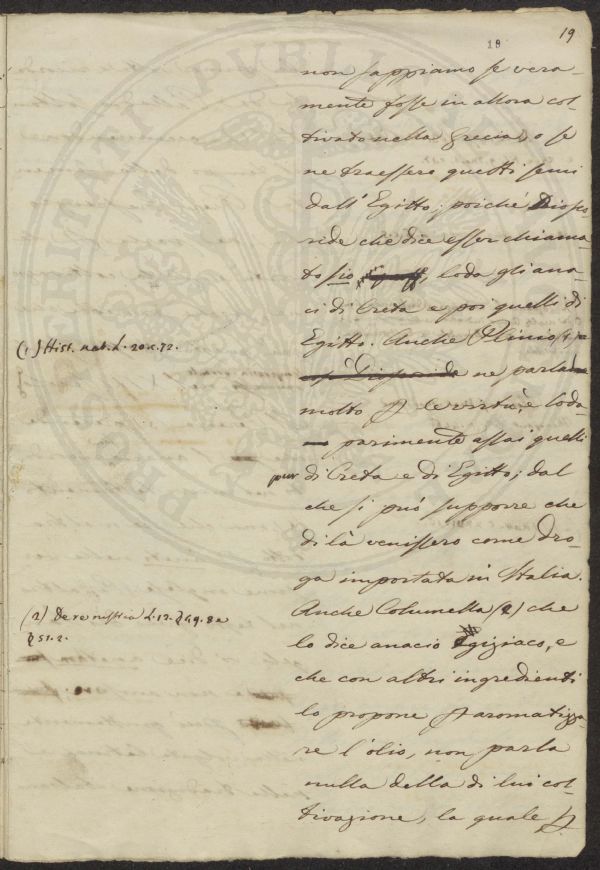 19
19
non sappiamo se vera-
mente fosse in allora col-
tivato nella Grecia, o se
ne traessero questi semi
dall' Egitto; poichè Diosco
ride che dice esser chiama-
to sio, loda gli ana-
ci di Creta e poi quelli di
Egitto. Anche Plinio (1)
ne parla
(1) Hist. nat. L. 20. c. 72.
molto le virtù, e loda
parimente assai quelli
pur
di Creta e di Egitto; dal
che si può supporre che
di là venissero come dro-
ga importata in Italia.
Anche Columella (2) che
(2) De re rustica L. 12. § 49. 8 e
§ 51. 2.
lo dice anacio Egiziaco, e
che con altri ingredienti
lo propone aromatizza-
re l'olio, non parla
nulla della di lui col-
tivazione, la quale
PROSPERITATI PUBLICAE